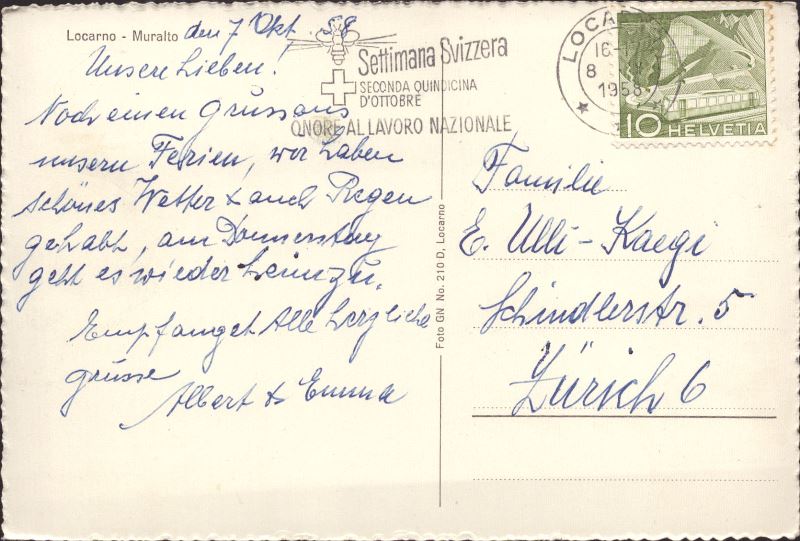 Locarno - Muralto den 7 Okt, 58
Unsere Lieben!
Noch einen Gruss aus
unsern Ferien, wir haben
schönes Wetter & auch Regen
gehabt, am Donnerstag
geht es wieder heimzu.
Empfanget Alle herzliche
grüsse
Albert & Emma
Settimana Svizzera
SECONDA QUINDICINA
D'OTTOBRE
ONORE AL LAVORO NAZIONALE
LOCARNO
16-
8
1958
10 HELVETIA
Foto GN No. 210 D, Locarno
Familie
E. Ulli-Kaegi
Schindlerstr. 5
Zürich 6